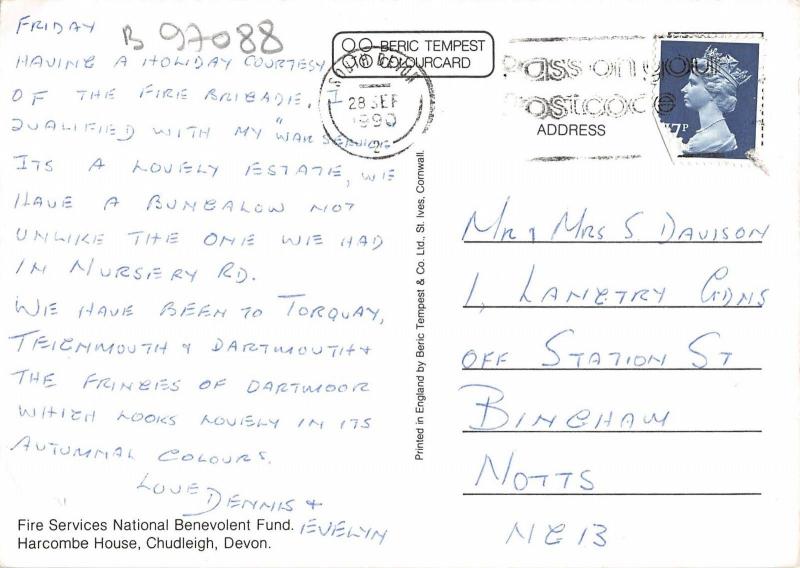 FRIDAY
B 97088
HAVING A HOLIDAY COURTESY
OF THE FIRE BRIGADE. I
QUALIFIED WITH MY "WAR SERVICE
ITS A LOVELY ESTATE, WE
HAVE A BUNGALOW NOT
UNLIKE THE ONE WE HAD
IN NURSERY RD.
WE HAVE BEEN TO TORQUAY,
TEIGNMOUTH & DARTMOUTH &
THE FRINGES OF DARTMOOR
WHICH LOOKS LOVELY IN ITS
AUTUMNAL COLOURS.
LOVE DENNIS &
EVELYN
Fire Services National Benevolent Fund.
Harcombe House, Chudleigh, Devon.
Printed in England by Beric Tempest & Co. Ltd., St. Ives, Cornwall.
BERIC TEMPEST
COLOURCARD
SOUTH DEVON
28 SEP
1990
2
Pass on your
Postcode
ADDRESS
17P
MR & MRS S DAVISON
1, LANGTRY GDNS
OFF STATION ST
BINGHAM
NOTTS
NG13